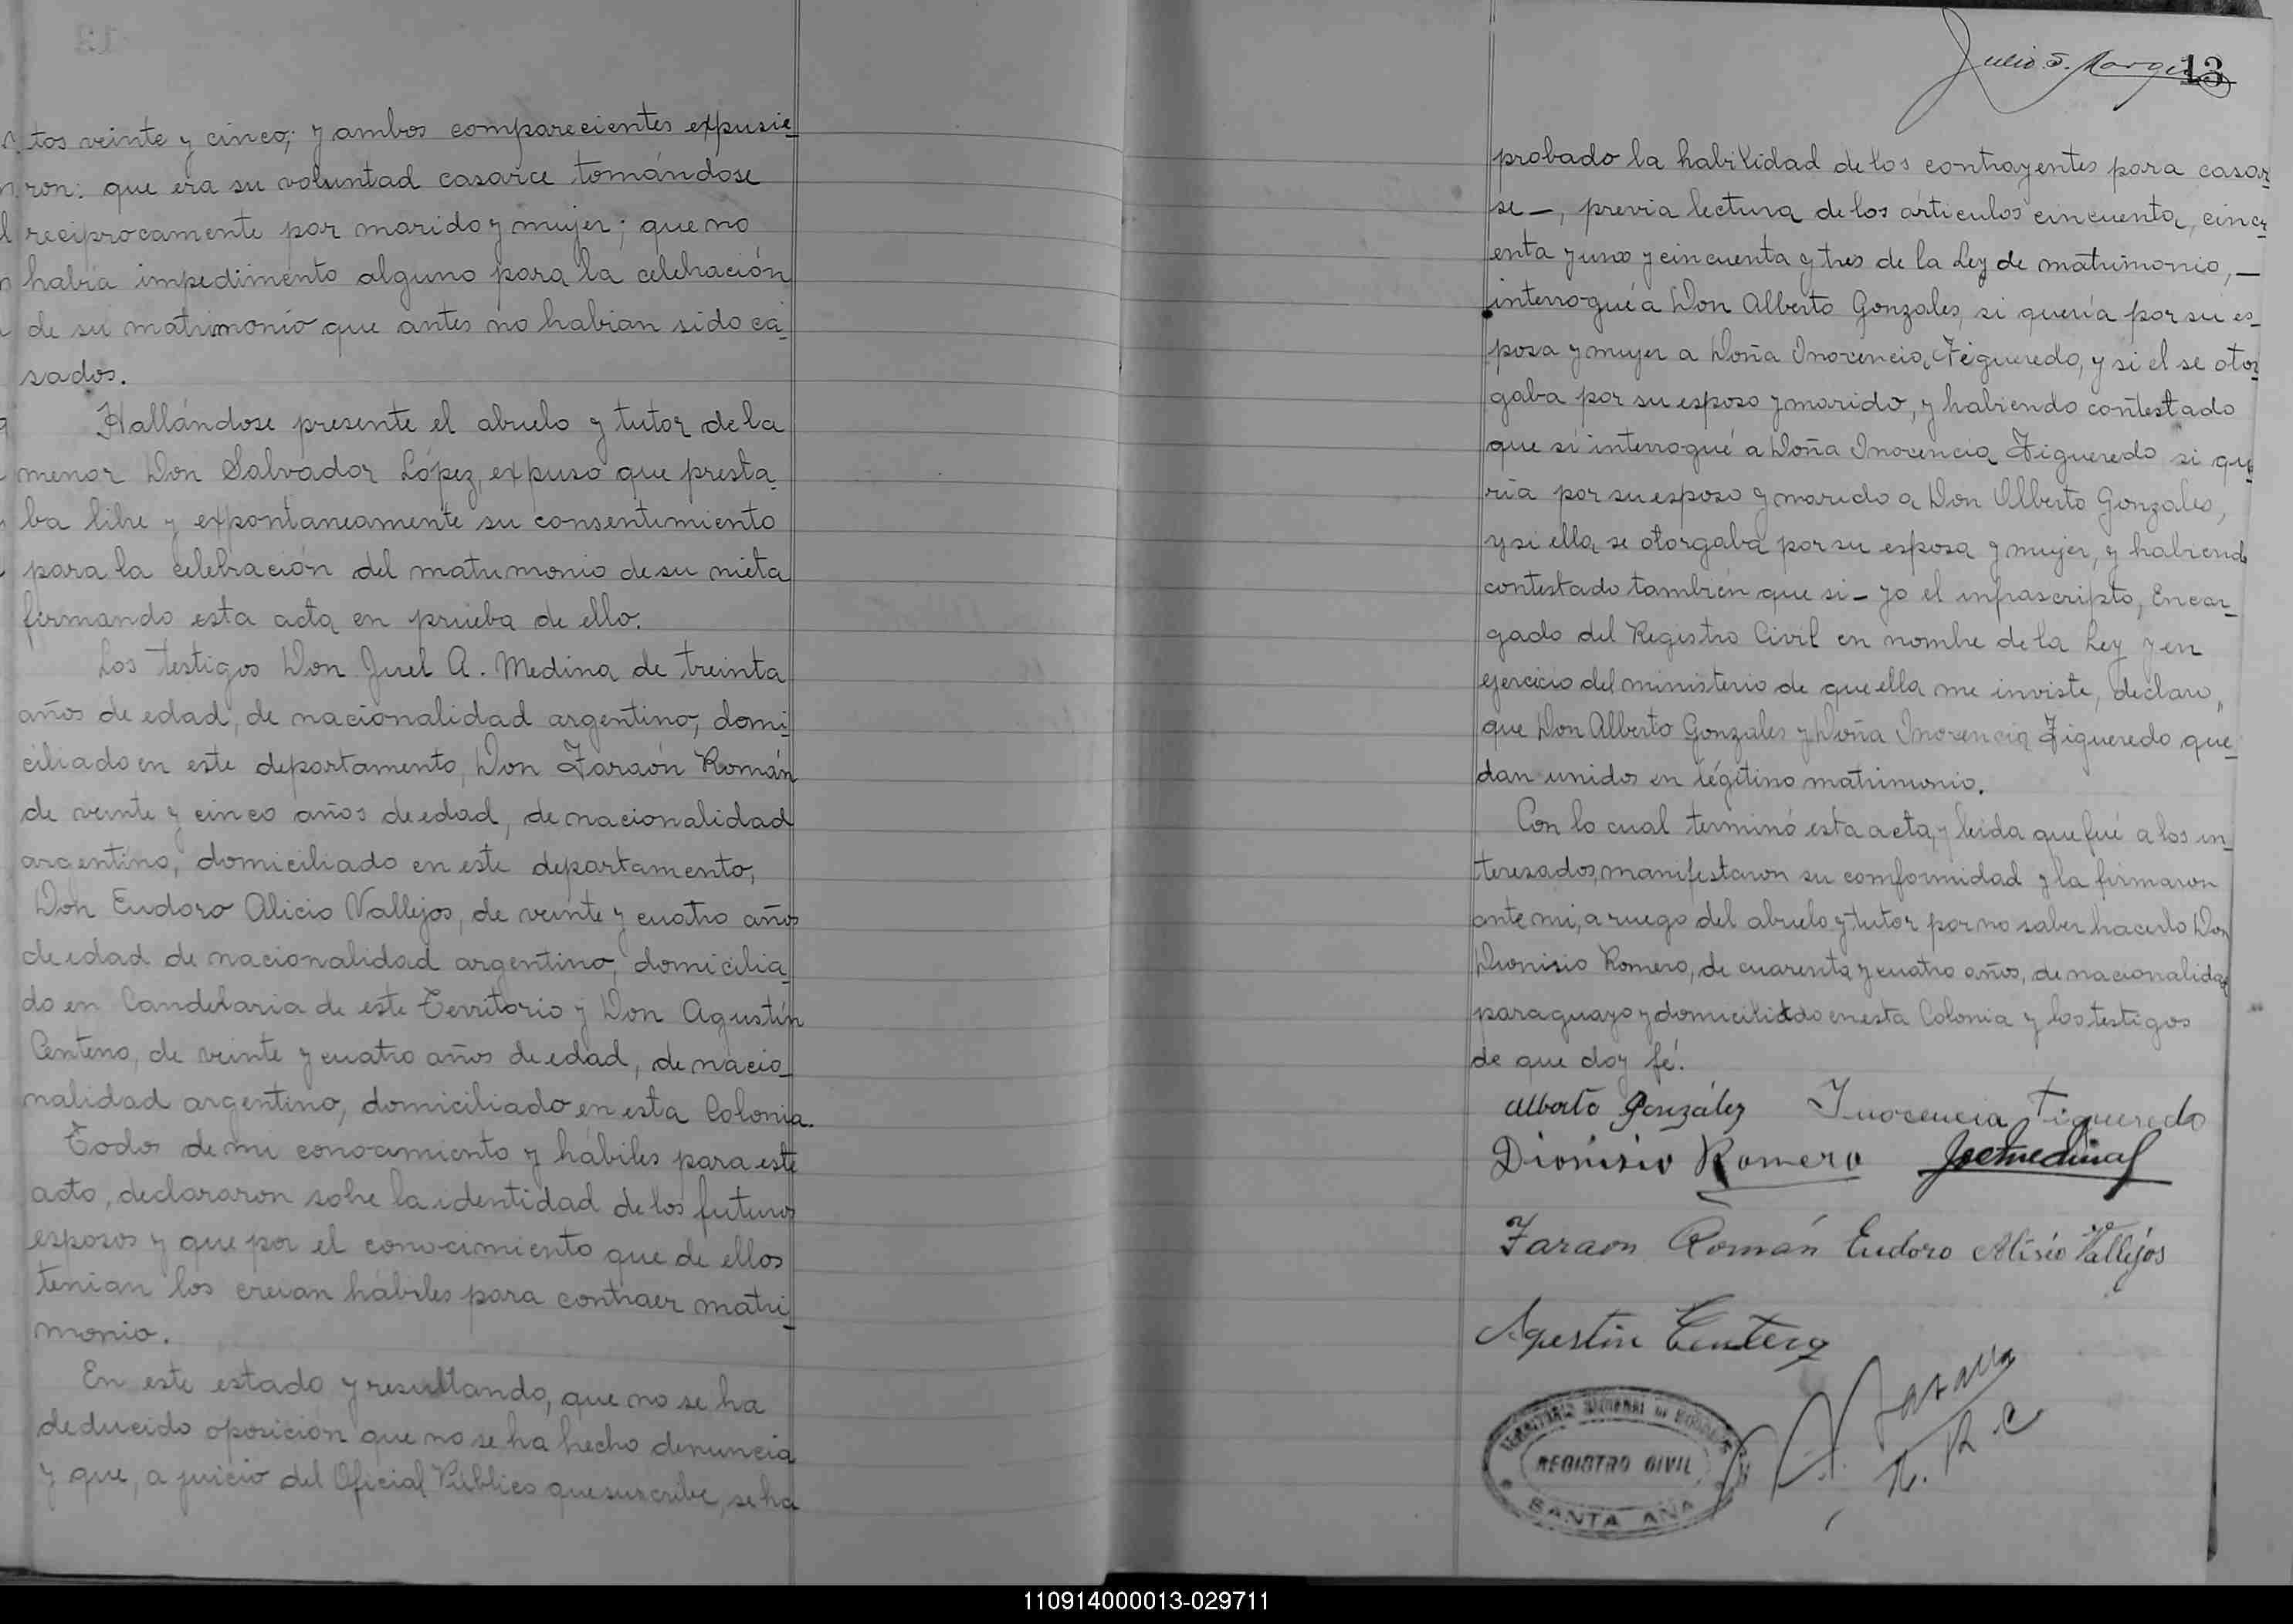 tos veinte y cinco; y ambos comparecientes expusie_
ron: que era su voluntad casarce tomándose
reciprocamente por marido y mujer; que no
habia impedimento alguno para la celebración
de su matrimonio que antes no habian sido ca_
sados.
Hallándose presente el abuelo y tutor de la
menor Don Salvador López, expuso que presta_
ba libre y expontaneamente su consentimiento
para la celebración del matrimonio de su nieta
firmando esta acta en prueba de ello.
Los testigos Don Juel A. Medina de treinta
años de edad, de nacionalidad argentino, domi_
ciliado en este departamento, Don Faraón Román
de veinte y cinco años de edad, de nacionalidad
argentino, domiciliado en este departamento,
Don Eudoro Alicio Vallejos, de veinte y cuatro años
de edad de nacionalidad argentino, domicilia_
do en Candelaria de este Territorio y Don Agustín
Centeno, de veinte y cuatro años de edad, de nacio_
nalidad argentino, domiciliado en esta Colonia.
Todos de mi conocimiento y hábiles para este
acto, declararon sobre la identidad de los futuros
esposos y que por el conocimiento que de ellos
tenian los creian hábiles para contraer matri_
monio.
En este estado y resultando, que no se ha
deducido oposición que no se ha hecho denuncia
y que, a juicio del Oficial Público que suscribe, se ha
Julio S.
13
probado la habilidad de los contrayentes para casar_
se_, previa lectura de los árticulos cincuenta, cincu_
enta y uno y cincuenta y tres de la Ley de matrimonio,_
interrogué a Don Alberto Gonzales, si quería por su es_
posa y mujer a Doña Inocencia Figueredo, y si el se otor_
gaba por su esposo y marido, y habiendo contestado
que si interrogué a Doña Inocencia Figueredo si que_
ría por su esposo y marido a Don Alberto Gonzales,
y si ella se otorgaba por su esposa y mujer, y habiendo
contestado también que si_ yo el infrascripto, Encar_
gado del Registro Civil en nombre de la Ley y en
ejercicio del ministerio de que ella me inviste, declaro,,
que Don Alberto Gonzales y Doña Inocencia Figueredo que_
dan unidos en légitimo matrimonio.
Con lo cual terminó esta acta, y leida que fué a los in_
teresados, manifestaron su comformidad y la firmaron
ante mi, a ruego del abuelo y tutor por no saber hacerlo Don
Dionisio Romero, de cuarenta y cuatro años, de nacionalidad
paraguayo y domiciliado en esta Colonia y los testigos
de que doy fé.
Alberto González Inocencia Figueredo
Dionisio Romero
Faraon Román Eudoro Alisio Vallejos
Agustin Centeno
TERRITORIO NACIONAL DE MISIONES
REGISTRO CIVIL
SANTA ANA
110914000013-029711